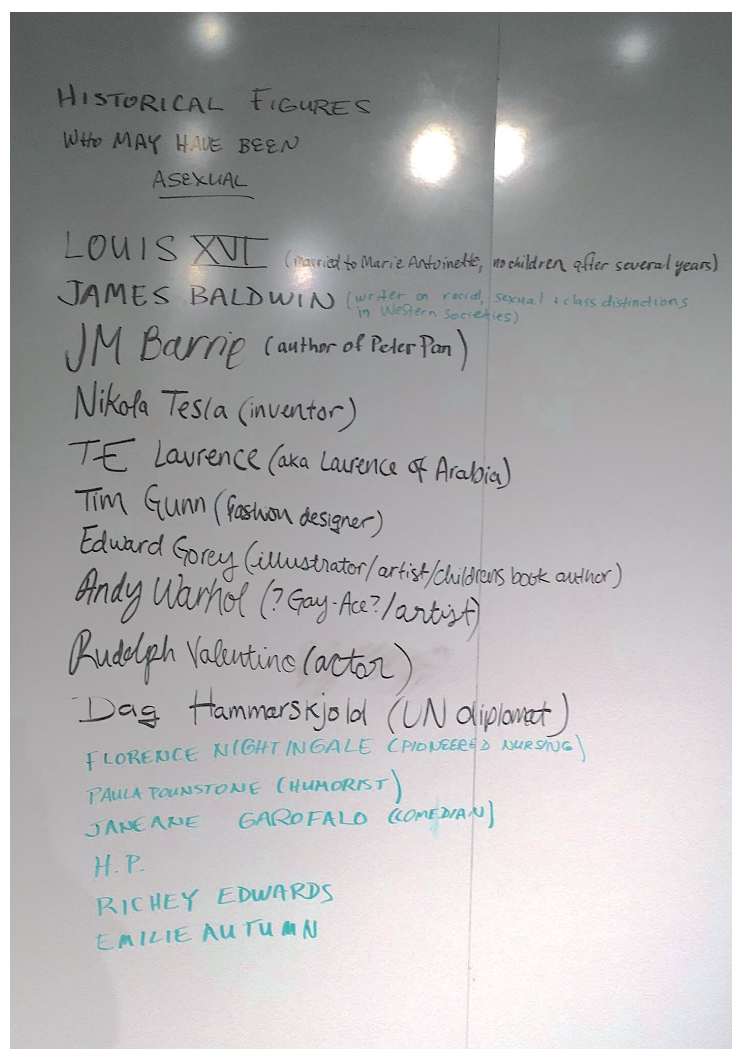 HISTORICAL FIGURES
WHO MAY HAVE BEEN
ASEXUAL
LOUIS XVI (married to Marie Antoinette, no children after several years)
JAMES BALDWIN (writer on racial, sexual + class distinctions
in Western societies)
JM Barrie (author of Peter Pan)
Nikola Tesla (inventor)
TE Lawrence (aka Lawrence of Arabia)
Tim Gunn (fashion designer)
Edward Gorey (illustrator/artist/childrens book author)
Andy Warhol (? Gay-Ace?/artist)
Rudolph Valentino (actor)
Dag Hammarskjold (UN diplomat)
FLORENCE NIGHTINGALE (PIONEERED NURSING)
PAULA POUNSTONE (HUMORIST)
JANEANE GAROFALO (COMEDIAN)
H.P.
RICHEY EDWARDS
EMILIE AUTUMN